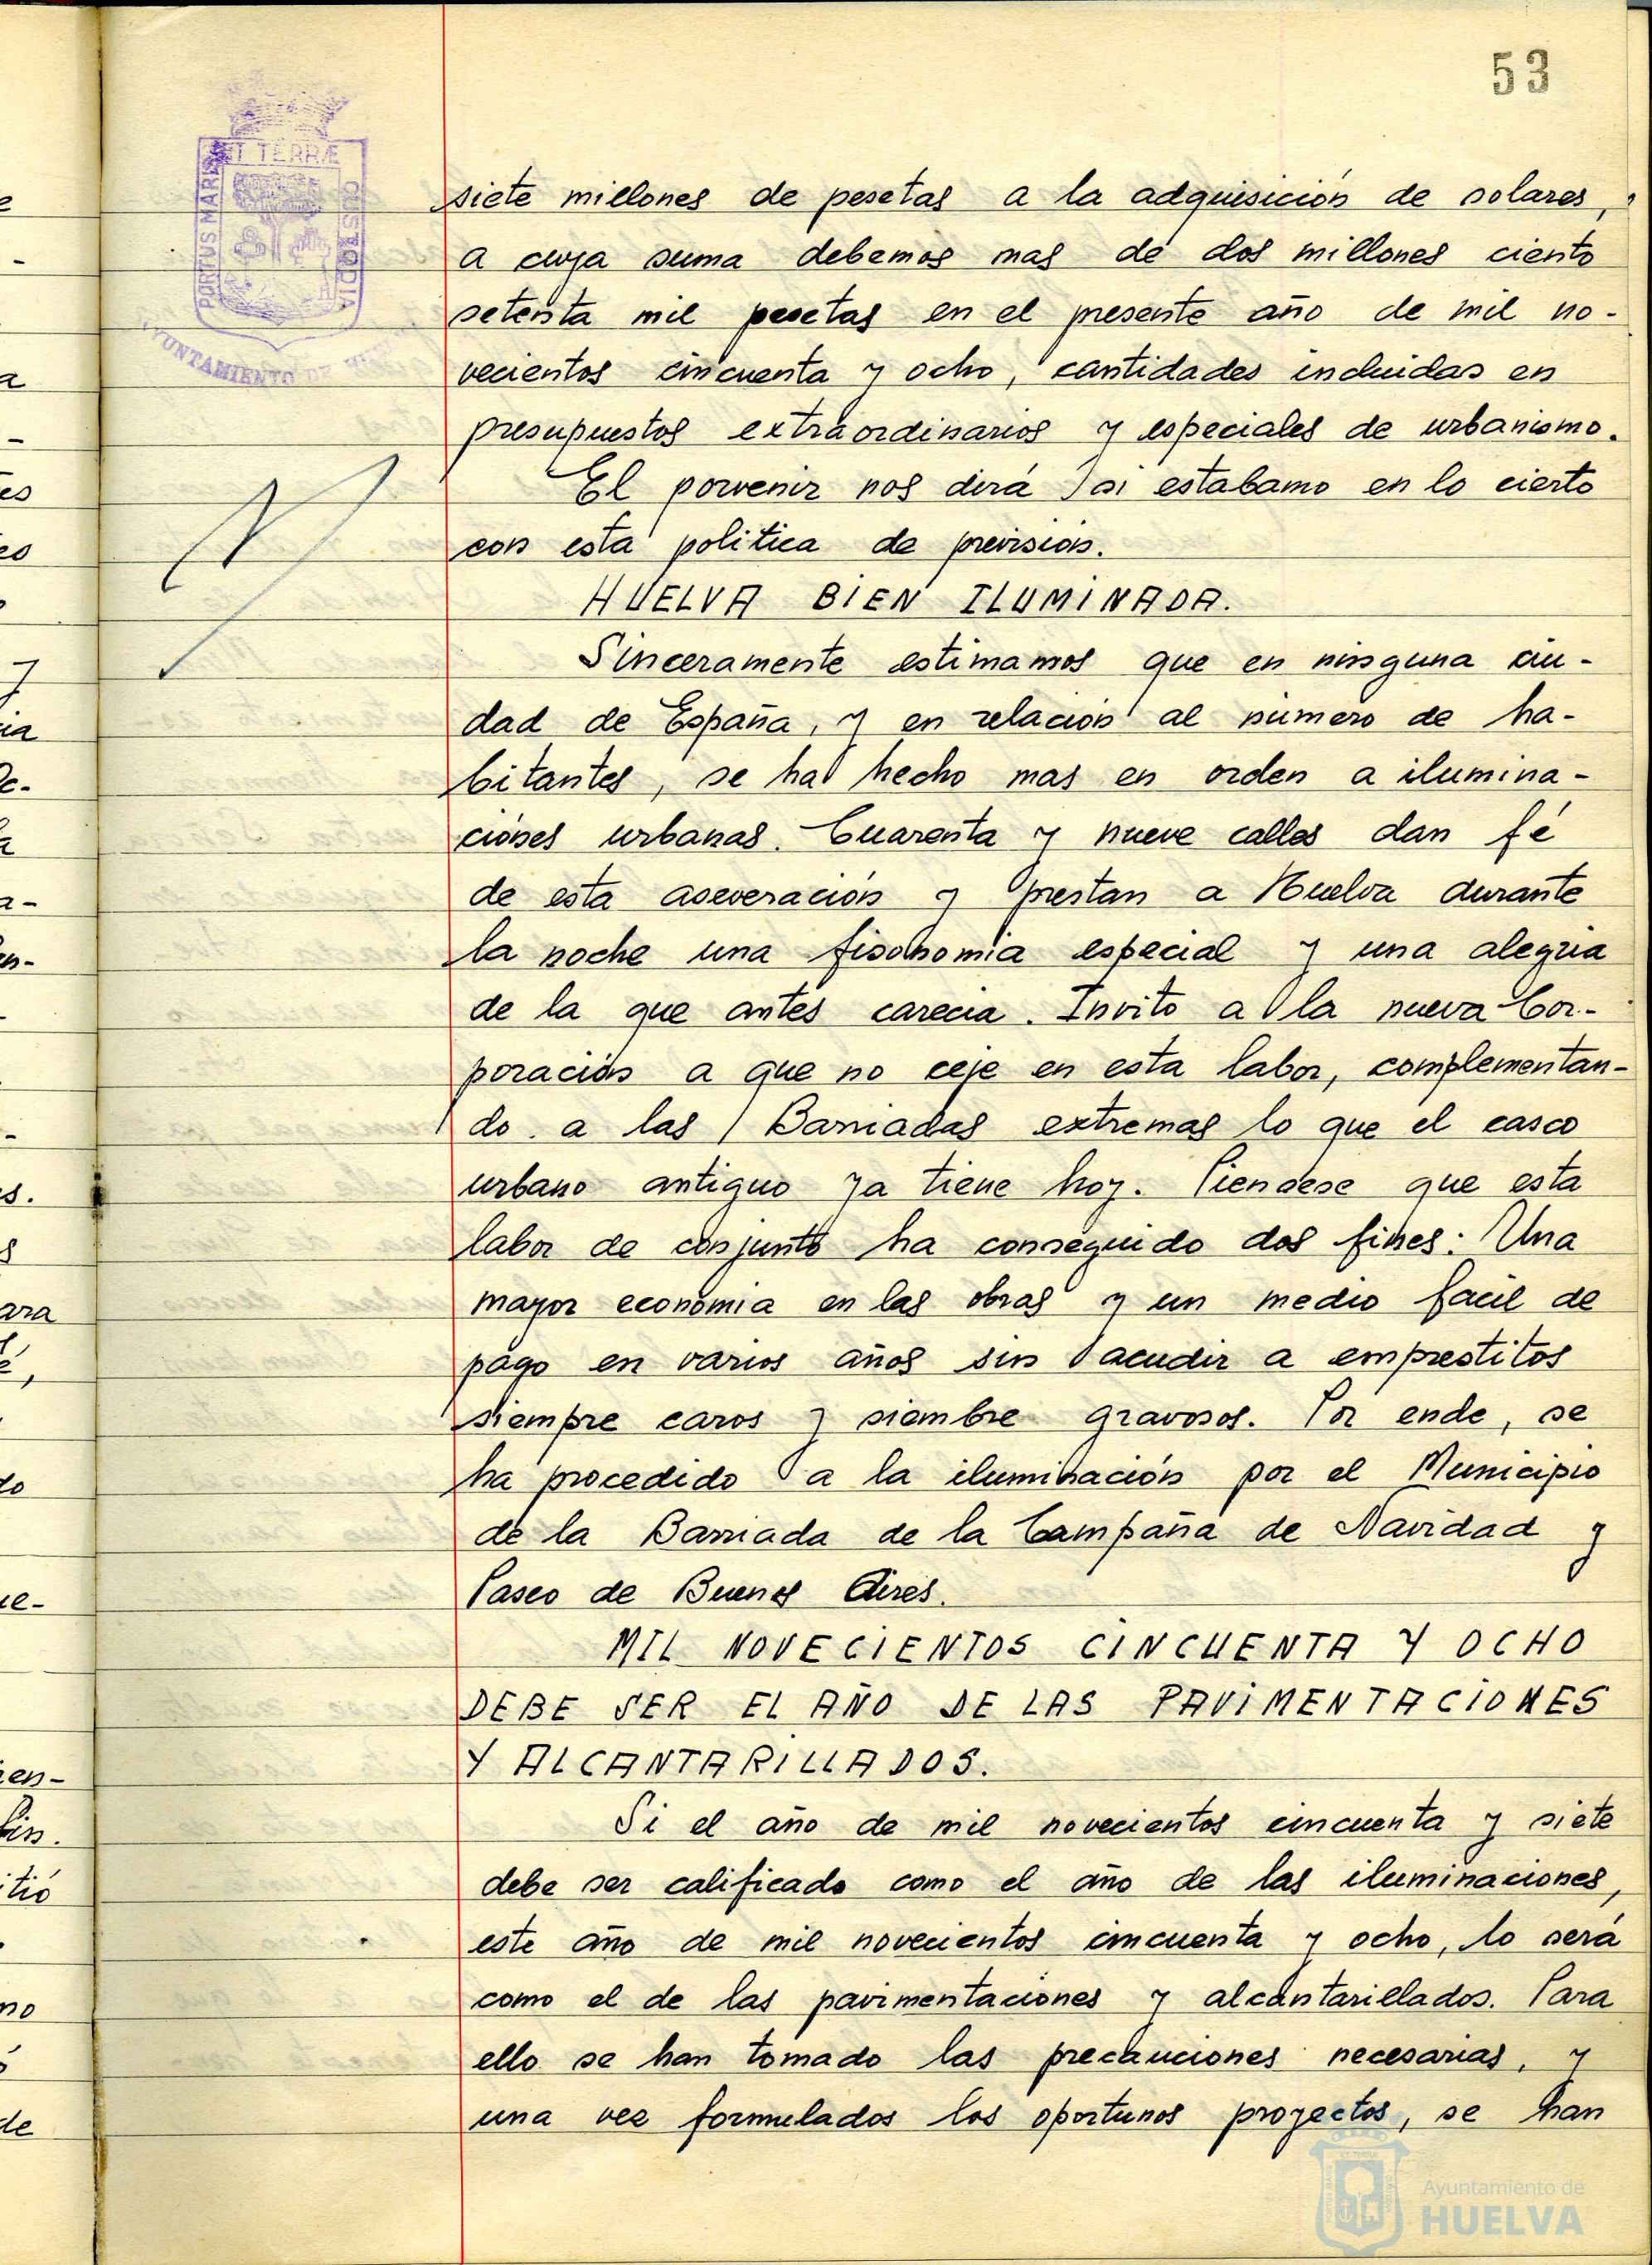 53
ET TERRÆ
PORTUS MARIS
CUSTODIA
AYUNTAMIENTO DE
siete millones de pesetas a la adquisición de solares,
a cuya suma debemos mas de dos millones ciento
setenta mil pesetas en el presente año de mil no-
vecientos cincuenta y ocho, cantidades incluidas en
presupuestos extraordinarios y especiales de urbanismo.
El porvenir nos dirá si estabamo en lo cierto
con esta politica de previsión.
HUELVA BIEN ILUMINADA.
Sinceramente estimamos que en ninguna ciu-
dad de España, y en relación al número de ha-
bitantes, se ha hecho mas en orden a ilumina-
ciones urbanas. Cuarenta y nueve calles dan fé
de esta aseveración y prestan a Huelva durante
la noche una fisonomia especial y una alegria
de la que antes carecia. Invito a la nueva Cor-
poración a que no ceje en esta labor, complementan-
do a las Barriadas extremas lo que el casco
urbano antiguo ya tiene hoy. Piendese que esta
labor de conjunto ha conseguido dos fines: Una
mayor economia en las obras y un medio facil de
pago en varios años sin acudir a emprestitos
siempre caros y siembre gravosos. Por ende, se
ha procedido a la iluminación por el Municipio
de la Barriada de la Campaña de Navidad y
Paseo de Buenos Aires.
MIL NOVECIENTOS CINCUENTA Y OCHO
DEBE SER EL AÑO DE LAS PAVIMENTACIONES
Y ALCANTARILLADOS.
Si el año de mil novecientos cincuenta y siete
debe ser calificado como el año de las iluminaciones,
este año de mil novecientos cincuenta y ocho, lo será
como el de las pavimentaciones y alcantarillados. Para
ello se han tomado las precauciones necesarias, y
una vez formulados los oportunos proyectos, se han
Ayuntamiento de
HUELVA